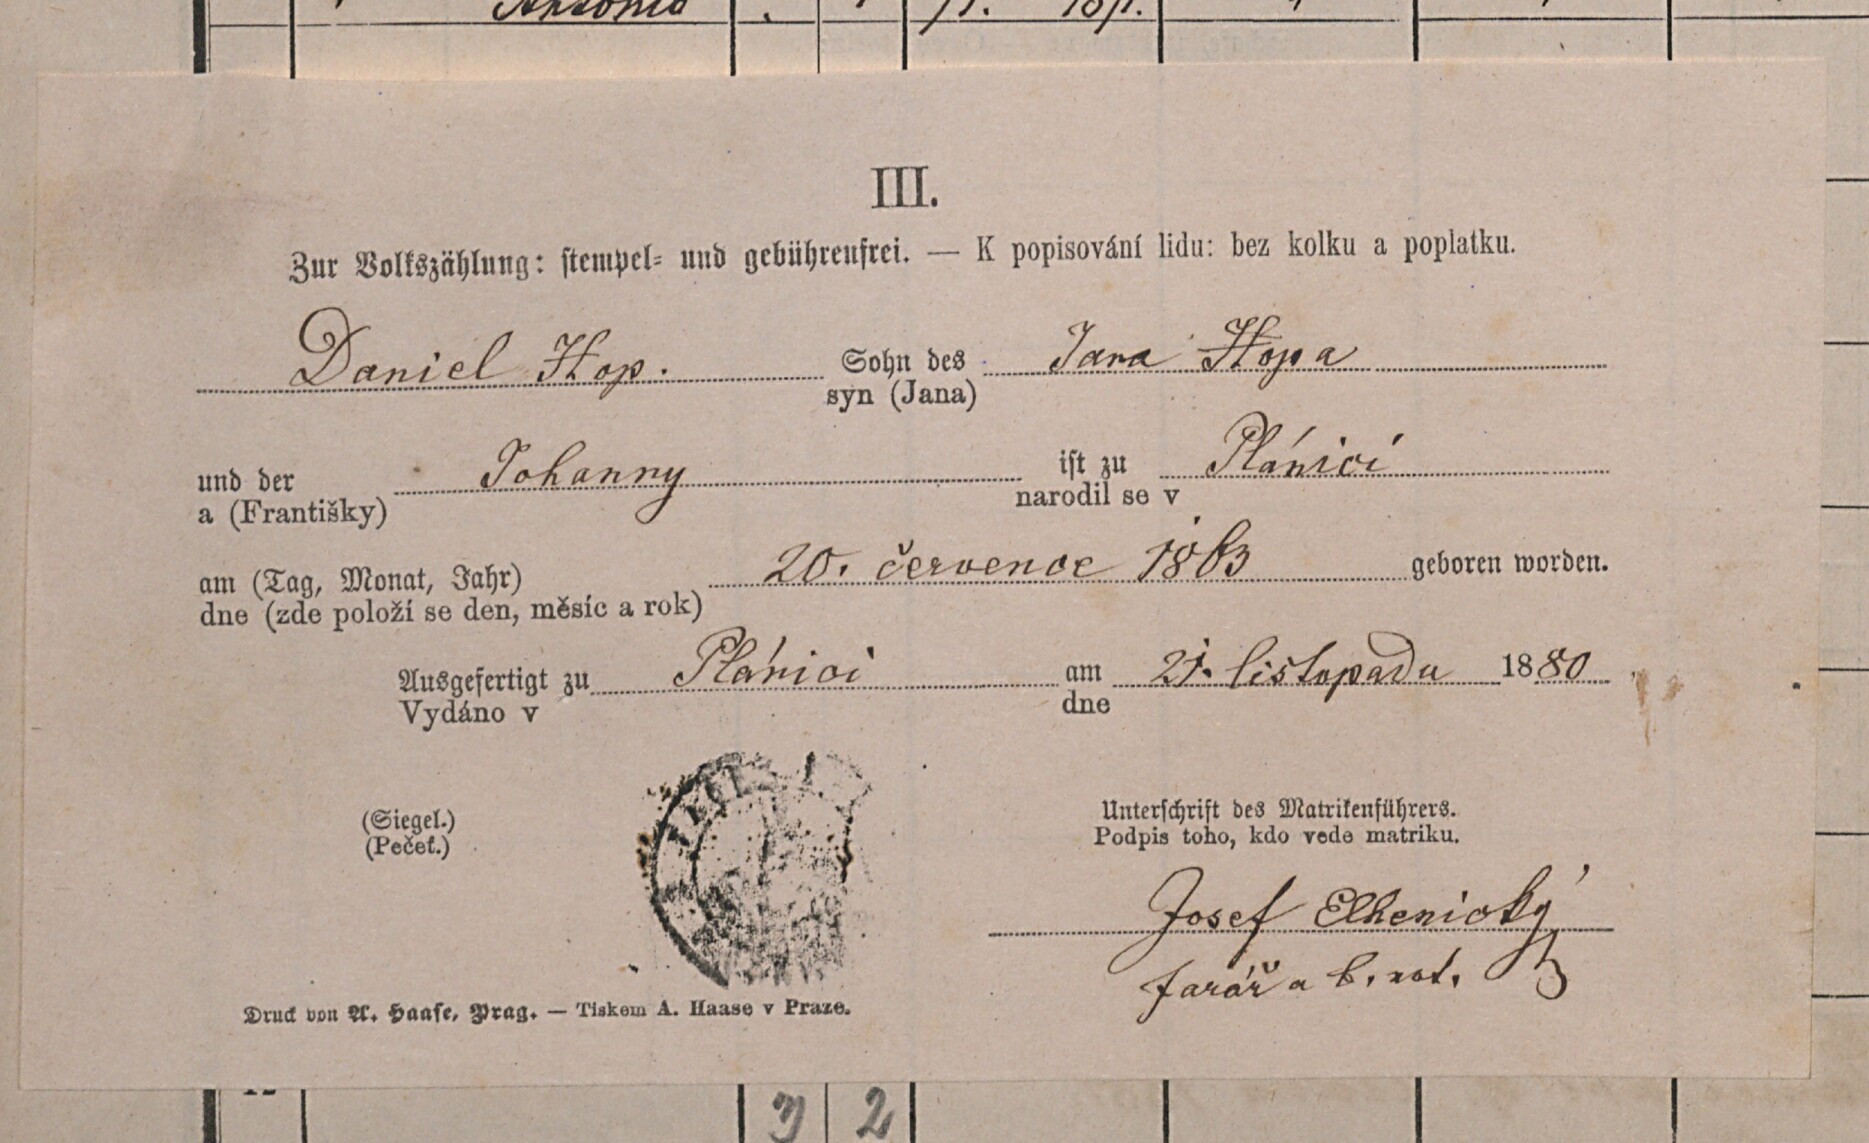 III.
Zur Volkszählung: stempel- und gebührenfrei. — K popisování lidu: bez kolku a poplatku.
Daniel Hop. Sohn des Jana Hopa
syn (Jana)
und der Johanny ist zu Plánici
a (Františky) narodil se v
am (Tag, Monat, Jahr) 20. července 1863 geboren worden.
dne (zde položí se den, měsíc a rok)
Ausgefertigt zu Plánici am 21. listopadu 1880
Vydáno v dne
(Siegel.) Unterschrift des Matrikenführers.
(Pečeť.) Podpis toho, kdo vede matriku.
Josef Elhenický
farář a b. not.
Druck von A. Haase, Prag. — Tiskem A. Haase v Praze.
2